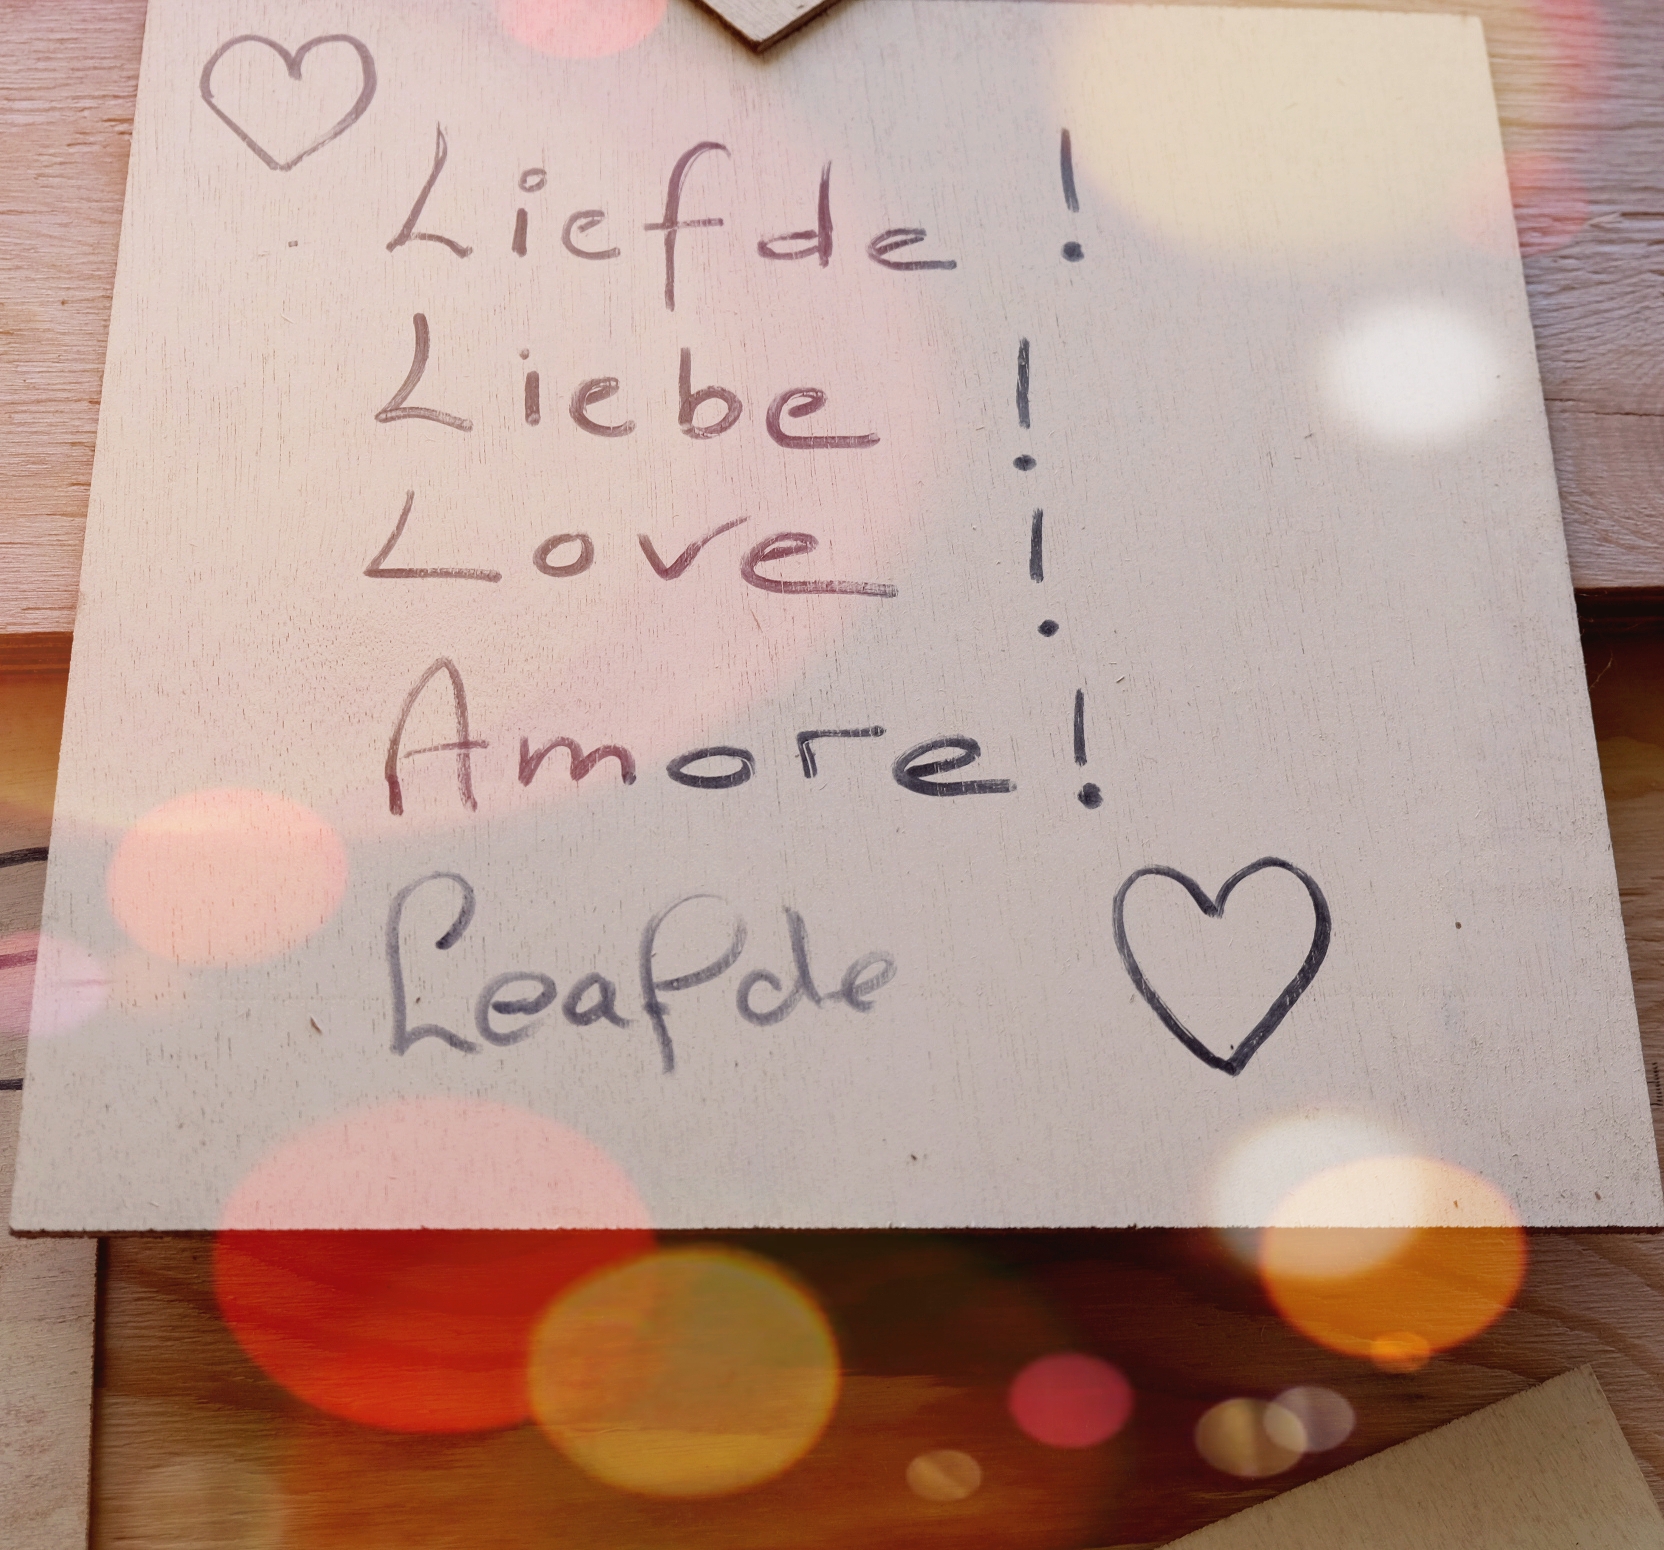 Liefde !
Liebe !
Love !
Amore !
Leafde